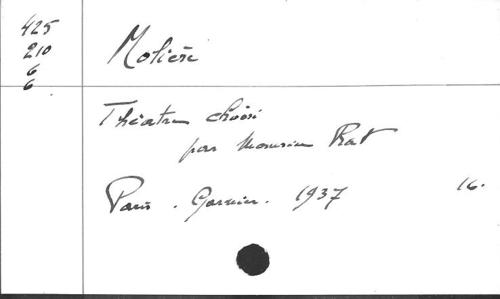 425
210
6
6
Molière
Théatre choisi
par Maurice Rat
Paris . Garnier . 1937 16.